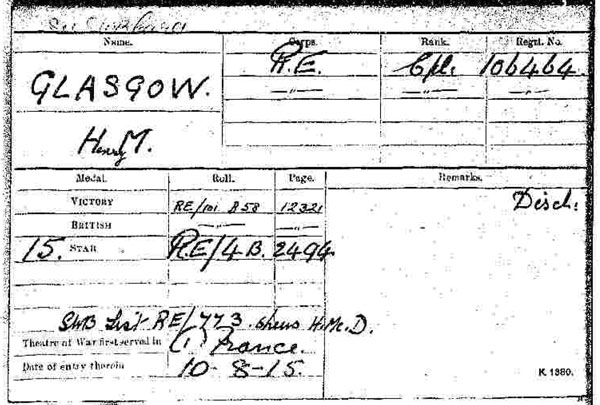 Name. Corps. Rank. Regtl. No.
GLASGOW. R.E. Cpl. 106464.
—"— —"— —"—
Henry M.
Medal. Roll. Page. Remarks.
VICTORY RE/101 B58 12321 Disch.
BRITISH —"— —"—
15. STAR R.E/4 B. 2494
SWB List RE/773 shews H.Mc.D.
Theatre of War first served in (1) France.
Date of entry therein 10-8-15.
K. 1380.